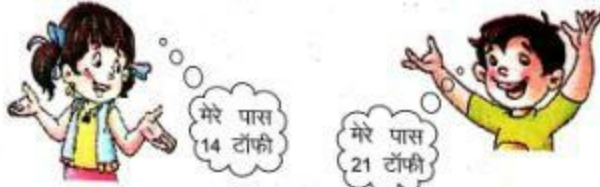 मेरे पास
14 टॉफी
मेरे पास
21 टॉफी